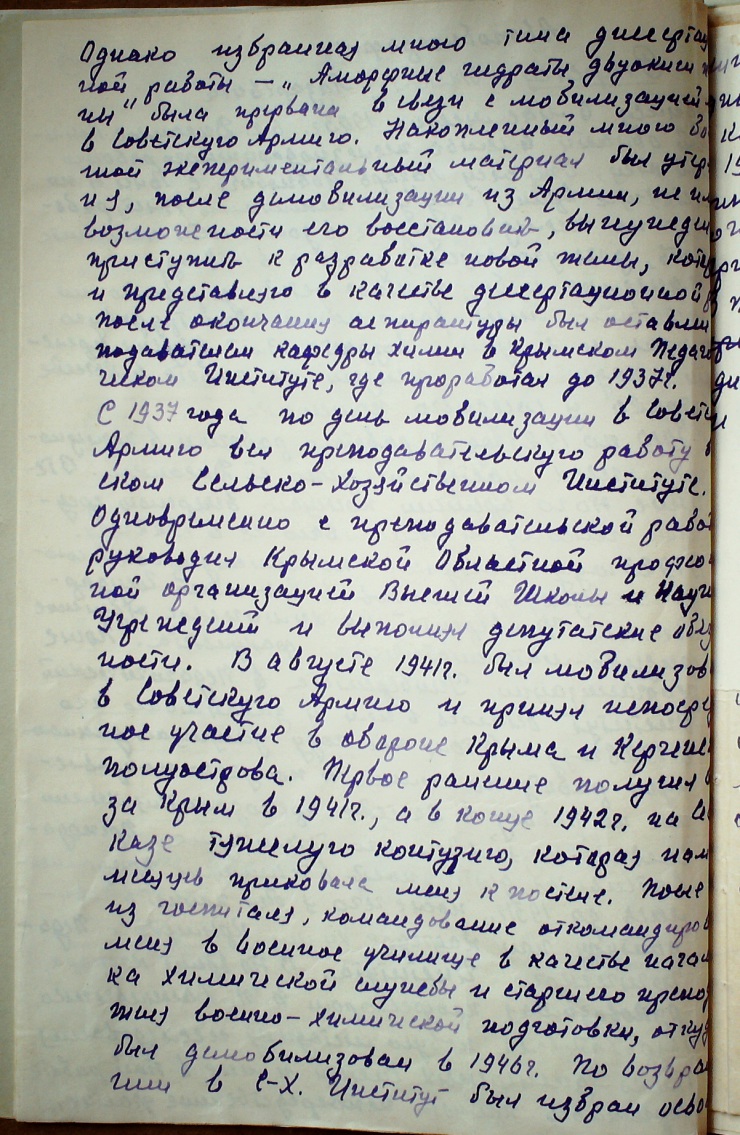 Однако избранная мною тема диссертац
ной работы — „Аморфные гидраты двуокиси
ны" была прервана в связи с мобилизацией
в Советскую Армию. Накопленный мною бо
шой экспериментальный материал был утер
и я, после демобилизации из Армии, не им
возможности его восстановить, вынужден
приступить к разработке новой темы, кото
и представляю в качестве диссертационной
После окончания аспирантуры был оставлен
подавателем кафедры химии в Крымском Педаго
ческом Институте, где проработал до 1937г.
С 1937 года по день мобилизации в Советс
Армию вел преподавательскую работу в
ском Сельско-Хозяйственном Институте.
Одновременно с преподавательской работ
руководил Крымской Областной профсо
ной организацией Высшей Школы и Научн
Учреждений и выполнял депутатские обяз
ности. В августе 1941г. был мобилизов
в Советскую Армию и принял непосре
ное участие в обороне Крыма и Керченс
полуострова. Первое ранение получил в
за Крым в 1941г., а в конце 1942г. на Ка
казе тяжелую контузию, которая на м
месяцев приковала меня к постели. После
из госпиталя, командование откомандиров
меня в военное училище в качестве начал
ка химической службы и старшего препод
теля военно-химической подготовки, откуда
был демобилизован в 1946г. По возвра
нии в С-Х. Институт был избран осво